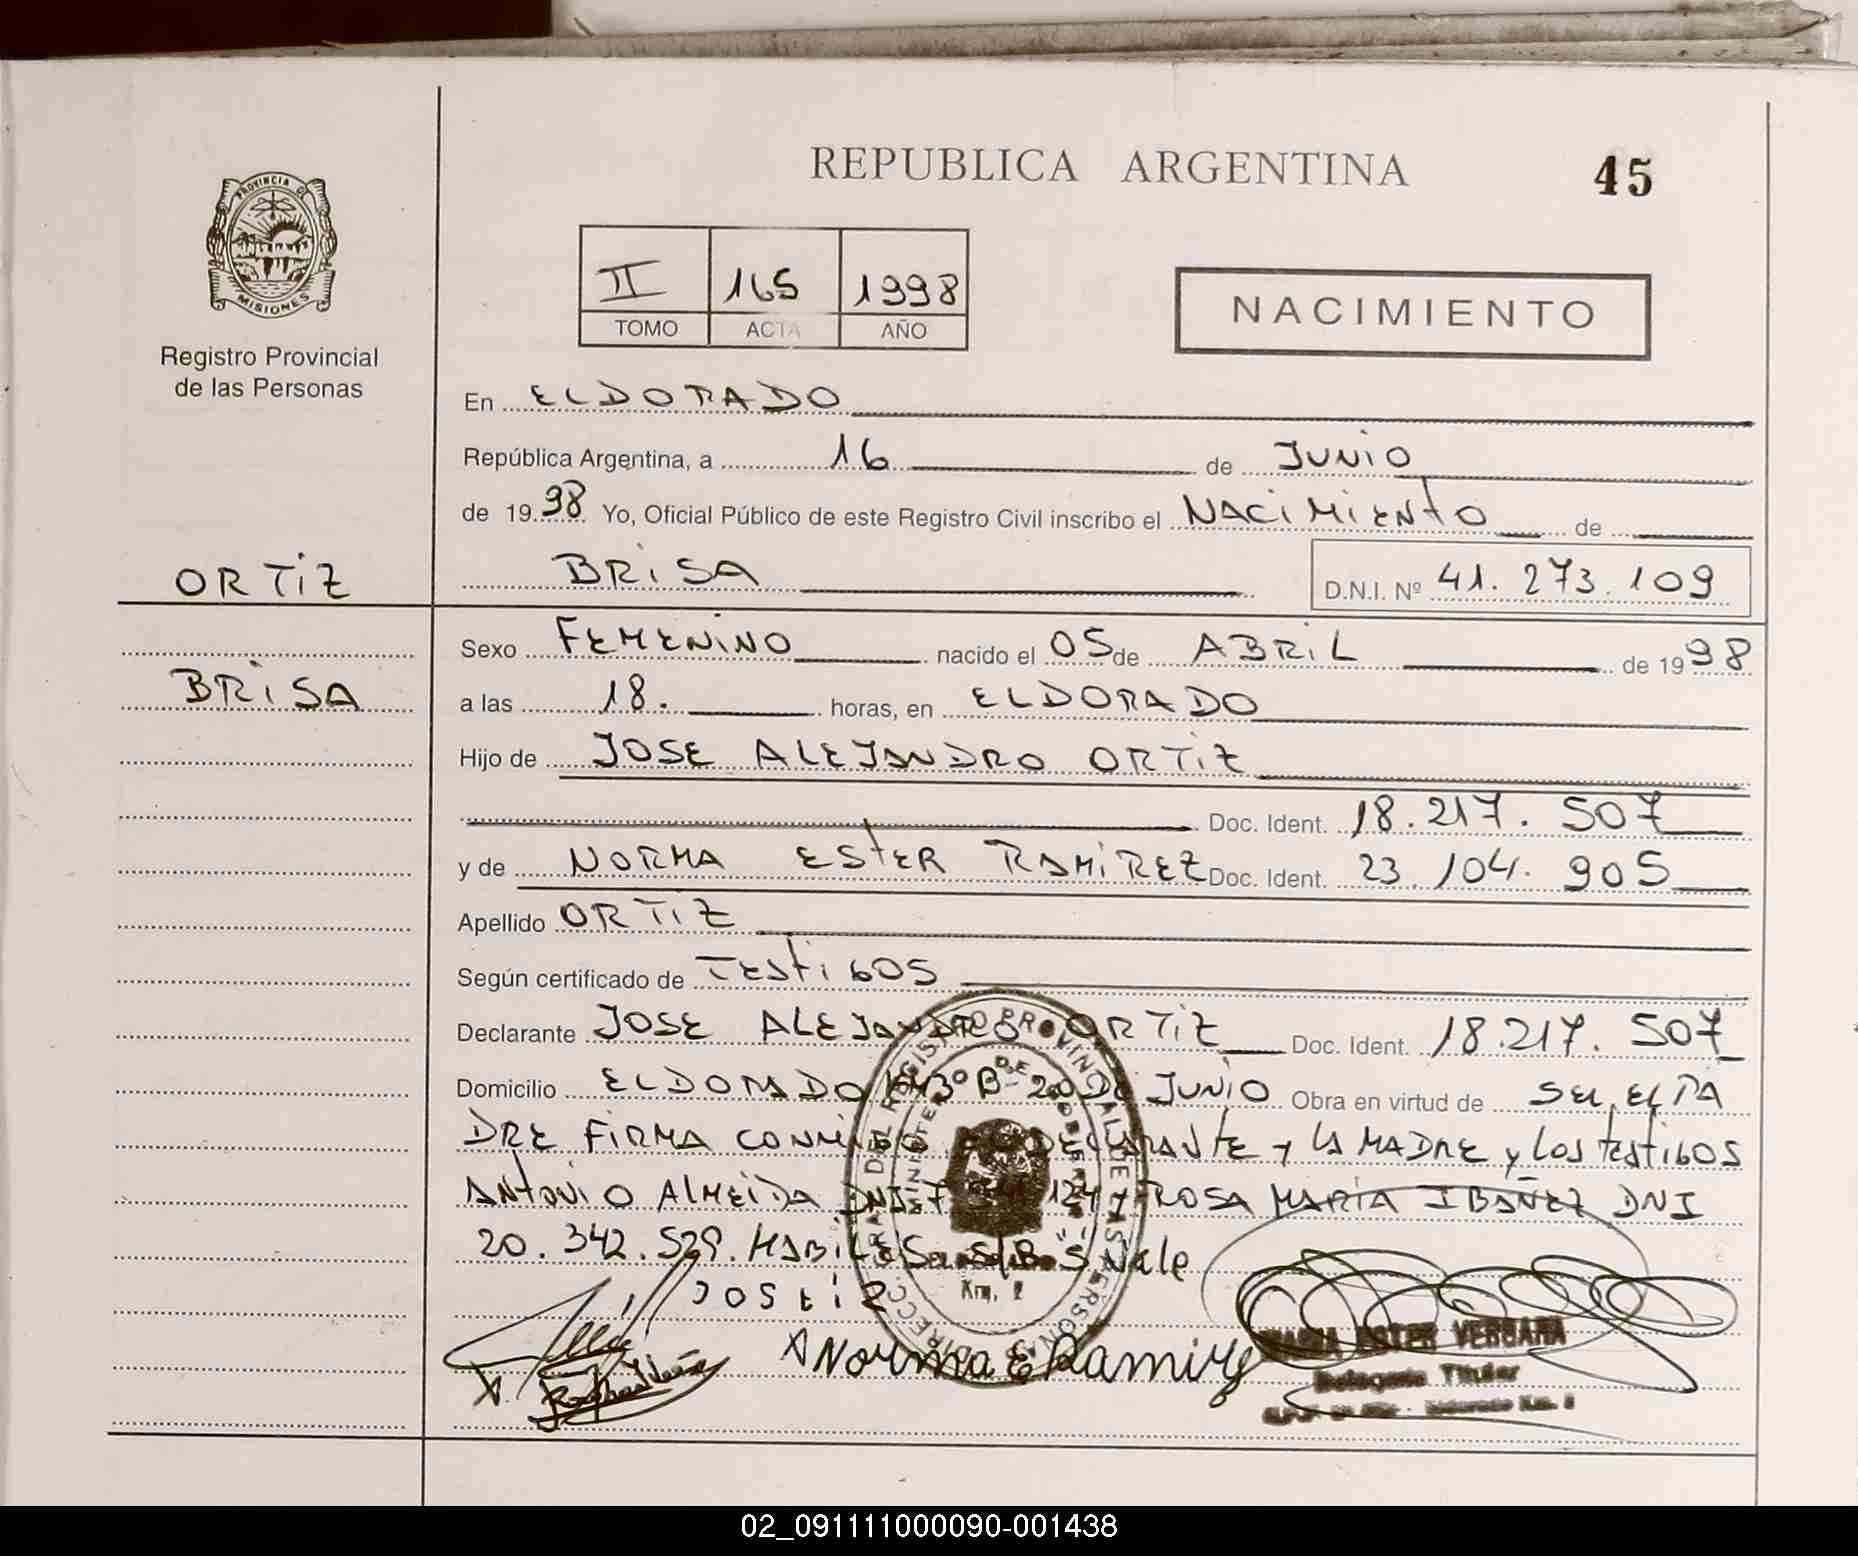 REPUBLICA ARGENTINA
45
PROVINCIA DE
MISIONES
Registro Provincial
de las Personas
II 165 1998
TOMO ACTA AÑO
NACIMIENTO
En ELDORADO
República Argentina, a 16 de JUNIO
de 1998 Yo, Oficial Público de este Registro Civil inscribo el NACIMIENTO de
ORTIZ
BRISA
BRISA D.N.I. Nº 41.273.109
Sexo FEMENINO nacido el 05 de ABRIL de 1998
a las 18. horas, en ELDORADO
Hijo de JOSE ALEJANDRO ORTIZ
Doc. Ident. 18.217.507
y de NORMA ESTER RAMIREZ Doc. Ident. 23.104.905
Apellido ORTIZ
Según certificado de TESTIGOS
Declarante JOSE ALEJANDRO ORTIZ Doc. Ident. 18.217.507
Domicilio ELDORADO Bº 20 DE JUNIO Obra en virtud de SER EL PA
DRE FIRMA CONMIGO DECLARANTE y LA MADRE y LOS TESTIGOS
ANTONIO ALMEIDA DNI y ROSA MARIA IBAÑEZ DNI
20.342.529. HABILES Vale
JOSTIZ
Norma E Ramirez
MARIA ESTER VERGARA
Delegada Titular
Eldorado Km. 2
Km. 2
02_091111000090-001438